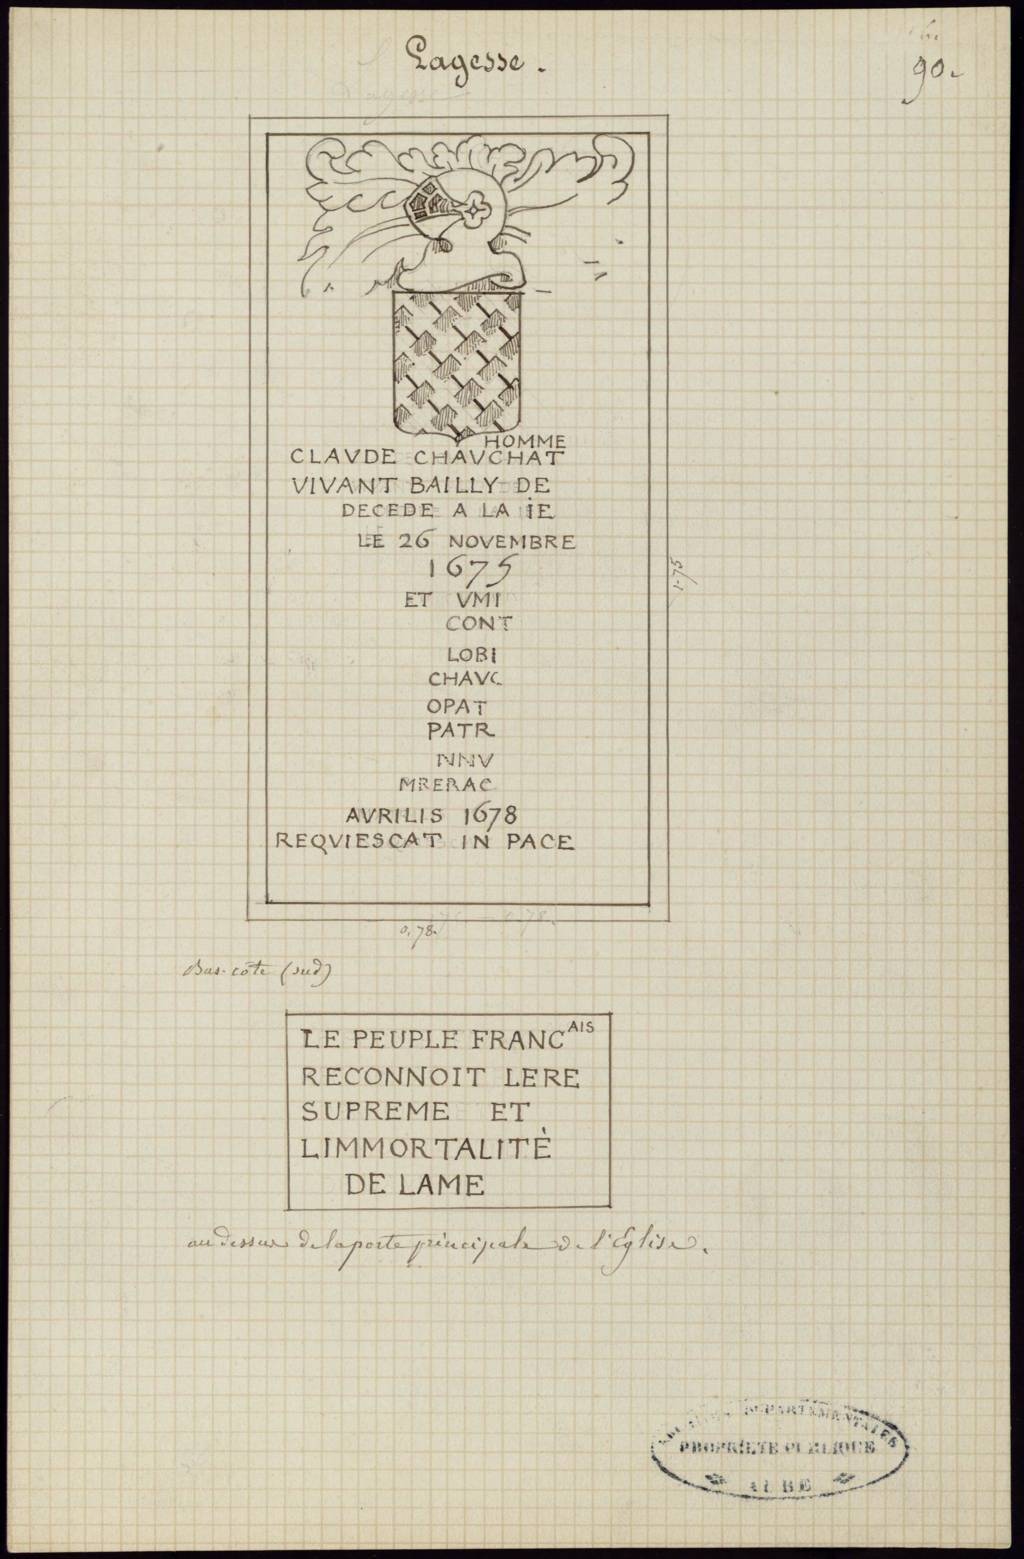 Lagesse.
90.
HOMME
CLAVDE CHAVCHAT
VIVANT BAILLY DE
DECEDE A LA IE
LE 26 NOVEMBRE
1675
ET VMI
CONT
LOBI
CHAVC
OPAT
PATR
NNV
MRERAC
AVRILIS 1678
REQVIESCAT IN PACE
1.75
0,78.
Bas-côté (sud)
LE PEUPLE FRANCAIS
RECONNOIT LERE
SUPREME ET
LIMMORTALITÈ
DE LAME
au dessus de la porte principale de l'Eglise.
ARCHIVES DEPARTEMENTALES
PROPRIETE PUBLIQUE
AUBE